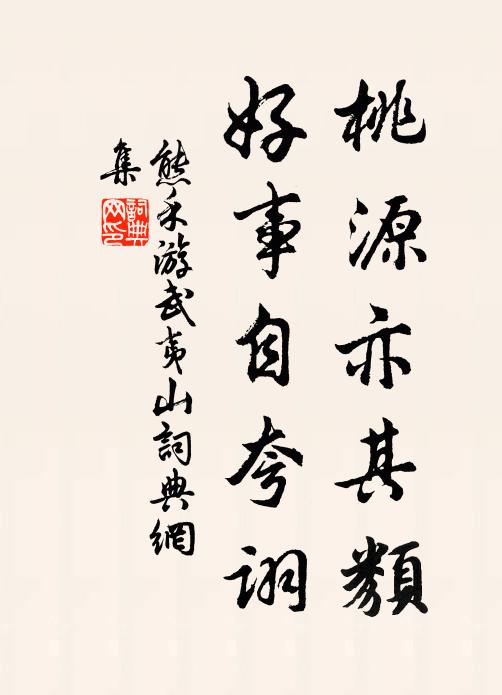 桃源亦其類
好事自夸詡
熊禾游武夷山詞典網
集
詞典網印